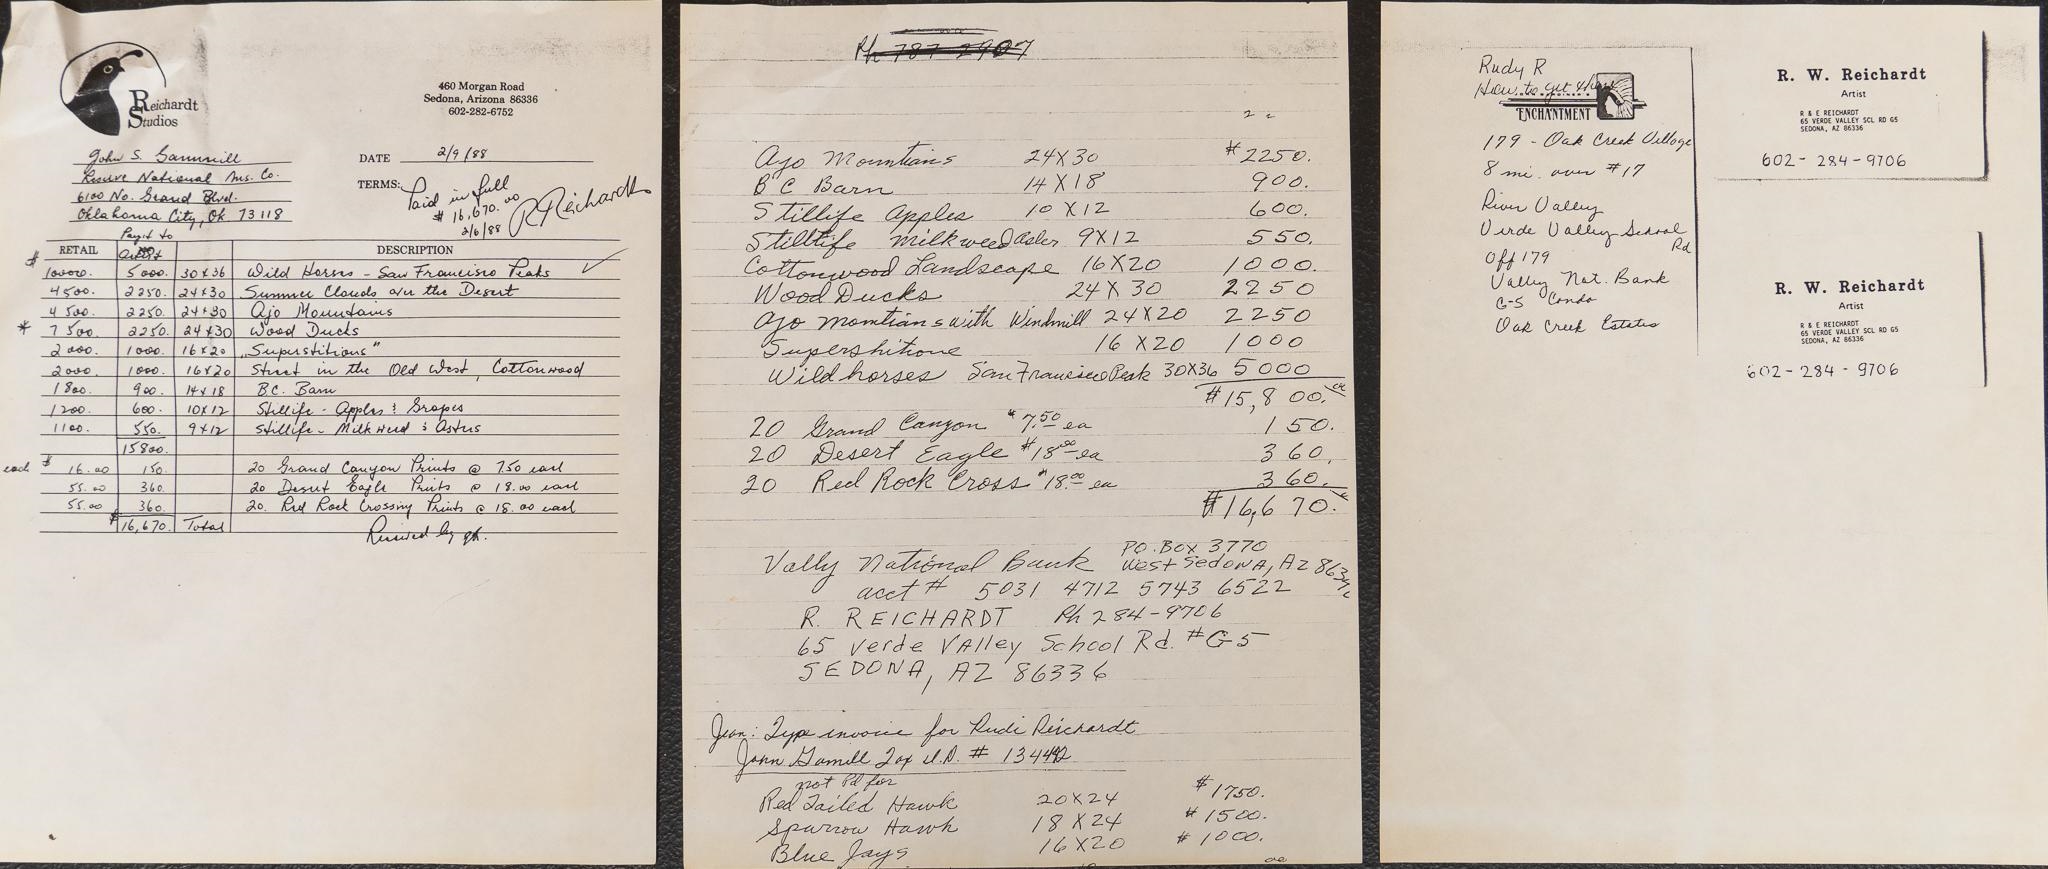 Reichardt
Studios
460 Morgan Road
Sedona, Arizona 86336
602-282-6752
John S. Gammill
Reserve National Ins. Co.
6100 No. Grand Blvd.
Oklahoma City, Ok 73118
DATE 2/9/88
TERMS: Paid in full
$ 16,670.00
2/6/88
R Reichardt
Pay't to
RETAIL Artist DESCRIPTION
$ 10000. 5000. 30x36 Wild Horses - San Francisco Peaks ✓
4500. 2250. 24x30 Summer Clouds over the Desert
4500. 2250. 24x30 Ajo Mountains
* 7500. 2250. 24x30 Wood Ducks
2000. 1000. 16x20 "Superstitions"
2000. 1000. 16x20 Street in the Old West, Cottonwood
1800. 900. 14x18 B.C. Barn
1200. 600. 10x12 Stillife - Apples & Grapes
1100. 550. 9x12 Stillife - Milkweed & Asters
15800.
each $ 16.00 150. 20 Grand Canyon Prints @ 7.50 each
55.00 360. 20 Desert Eagle Prints @ 18.00 each
55.00 360. 20 Red Rock Crossing Prints @ 18.00 each
$16,670. Total
Received by
Ph 787-2907
Ajo Mountians 24X30 $2250.
B C Barn 14X18 900.
Stillife Apples 10X12 600.
Stilllife milkweed Aster 9X12 550.
Cottonwood Landscape 16X20 1000.
Wood Ducks 24X30 2250
Ajo momtians with Windmill 24X20 2250
Supershitione 16X20 1000
Wild horses San Francisco Peak 30X36 5000
$15,800.
20 Grand Canyon $7.50 ea 150.
20 Desert Eagle $18.00 ea 360.
20 Red Rock Cross $18.00 ea 360.
$16,670.
Vally National Bank PO.BOX 3770
West Sedona, AZ
acct # 5031 4712 5743 6522
R. REICHARDT Ph 284-9706
65 Verde VAlley School Rd. #G-5
SEDONA, AZ 86336
Jean: Type invoice for Rudi Reichardt
John Gamill Tax I.D. #
not Pd for
Red Tailed Hawk 20X24 $1750.
Sparrow Hawk 18X24 $1500.
Blue Jays 16X20 $1000.
Rudy R
How to get there
ENCHANTMENT
179 - Oak Creek Village
8 mi. over #17
River Valley
Verde Valley School
Rd
Off 179
Valley Nat. Bank
G-5 Condo
Oak Creek Estates
R. W. Reichardt
Artist
R & E REICHARDT
65 VERDE VALLEY SCL RD G5
SEDONA, AZ 86336
602-284-9706
R. W. Reichardt
Artist
R & E REICHARDT
65 VERDE VALLEY SCL RD G5
SEDONA, AZ 86336
602-284-9706